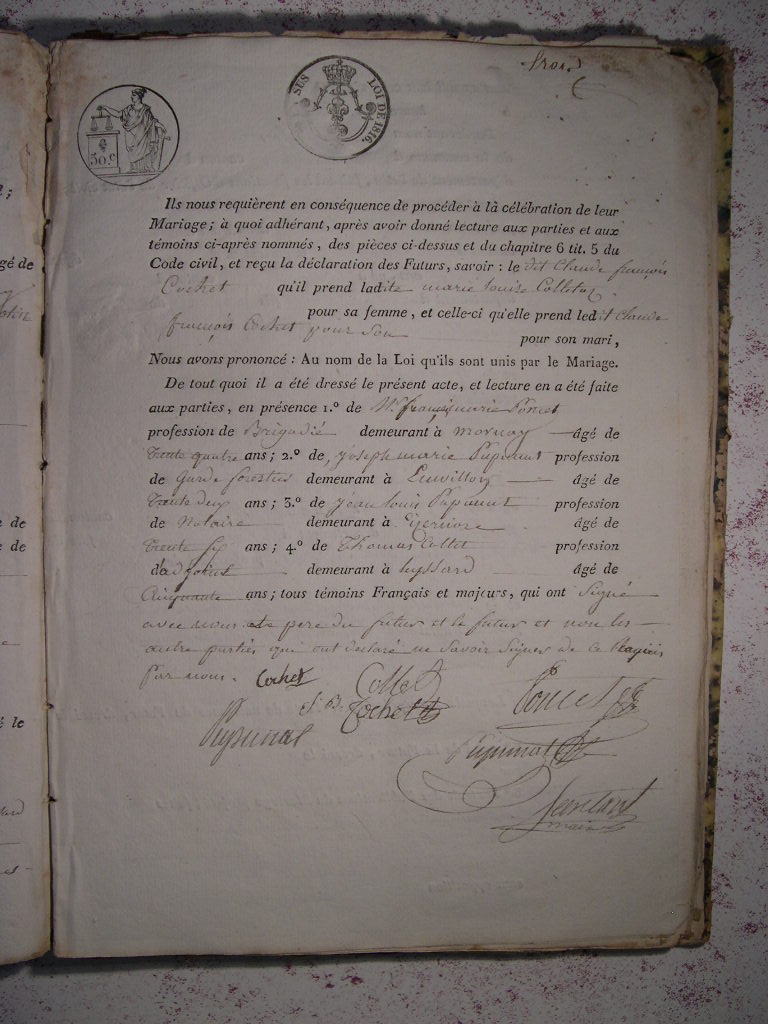 SUS LOI DE 1816.
50 c
trois
Ils nous requièrent en conséquence de procéder à là célébration de leur
Mariage; à quoi adhérant, après avoir donné lecture aux parties et aux
témoins ci-après nommés, des pièces ci-dessus et du chapitre 6 tit. 5 du
Code civil, et reçu la déclaration des Futurs, savoir : le dit Claude françois
Cochet qu'il prend ladite marie Louise Collet
pour sa femme, et celle-ci qu'elle prend ledit Claude
françois Cochet pour son
pour son mari,
Nous avons prononcé : Au nom de la Loi qu'ils sont unis par le Mariage.
De tout quoi il a été dressé le présent acte, et lecture en a été faite
aux parties, en présence 1.º de
profession de Brigadié demeurant à mornay âgé de
trente quatre ans; 2.º de joseph marie profession
de Garde forestier demeurant à âgé de
trente deux ans; 3.º de jean louis profession
de Notaire demeurant à âgé de
trente six ans; 4.º de Thomas Collet profession
d'adjoint demeurant à Leyssard âgé de
Cinquante ans; tous témoins Français et majeurs, qui ont Signé
avec nous et le pere du futur et le futur et non les
autre parties qui ont déclaré ne Savoir Signer de ce Requis
Par nous. Cochet Collet
J. B. Cochet